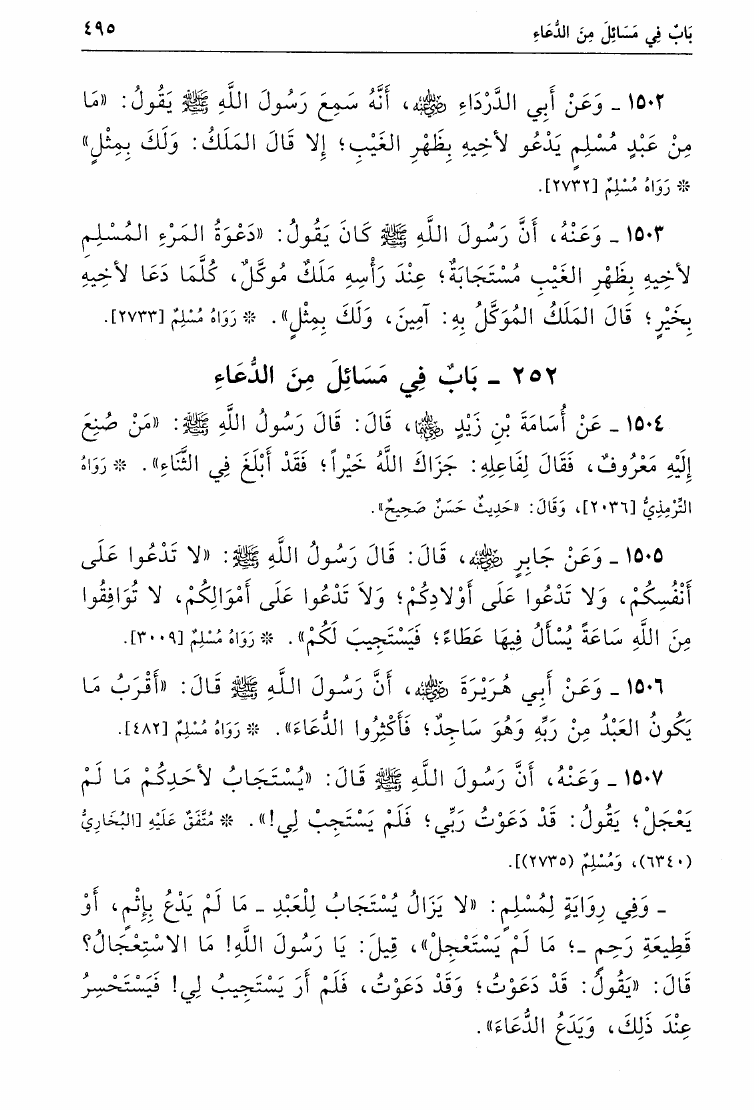 بَابٌ فِي مَسَائِلَ مِنَ الدُّعَاءِ ٤٩٥
١٥٠٢ ـ وَعَنْ أَبِي الدَّرْدَاءِ رضي الله عنه، أَنَّهُ سَمِعَ رَسُولَ اللَّهِ ﷺ يَقُولُ: «مَا
مِنْ عَبْدٍ مُسْلِمٍ يَدْعُو لأَخِيهِ بِظَهْرِ الغَيْبِ؛ إِلا قَالَ المَلَكُ: وَلَكَ بِمِثْلٍ»
* رَوَاهُ مُسْلِمٌ [٢٧٣٢].
١٥٠٣ ـ وَعَنْهُ، أَنَّ رَسُولَ اللَّهِ ﷺ كَانَ يَقُولُ: «دَعْوَةُ المَرْءِ المُسْلِمِ
لأَخِيهِ بِظَهْرِ الغَيْبِ مُسْتَجَابَةٌ؛ عِنْدَ رَأْسِهِ مَلَكٌ مُوَكَّلٌ، كُلَّمَا دَعَا لأَخِيهِ
بِخَيْرٍ؛ قَالَ المَلَكُ المُوَكَّلُ بِهِ: آمِينَ، وَلَكَ بِمِثْلٍ». * رَوَاهُ مُسْلِمٌ [٢٧٣٣].
٢٥٢ ـ بَابٌ فِي مَسَائِلَ مِنَ الدُّعَاءِ
١٥٠٤ ـ عَنْ أُسَامَةَ بْنِ زَيْدٍ رضي الله عنهما، قَالَ: قَالَ رَسُولُ اللَّهِ ﷺ: «مَنْ صُنِعَ
إِلَيْهِ مَعْرُوفٌ، فَقَالَ لِفَاعِلِهِ: جَزَاكَ اللَّهُ خَيْراً؛ فَقَدْ أَبْلَغَ فِي الثَّنَاءِ». * رَوَاهُ
التِّرْمِذِيُّ [٢٠٣٦]، وَقَالَ: «حَدِيثٌ حَسَنٌ صَحِيحٌ».
١٥٠٥ ـ وَعَنْ جَابِرٍ رضي الله عنه، قَالَ: قَالَ رَسُولُ اللَّهِ ﷺ: «لا تَدْعُوا عَلَى
أَنْفُسِكُمْ، وَلا تَدْعُوا عَلَى أَوْلادِكُمْ؛ وَلاَ تَدْعُوا عَلَى أَمْوَالِكُمْ، لا تُوَافِقُوا
مِنَ اللَّهِ سَاعَةً يُسْأَلُ فِيهَا عَطَاءً؛ فَيَسْتَجِيبَ لَكُمْ». * رَوَاهُ مُسْلِمٌ [٣٠٠٩].
١٥٠٦ ـ وَعَنْ أَبِي هُرَيْرَةَ رضي الله عنه، أَنَّ رَسُولَ اللَّهِ ﷺ قَالَ: «أَقْرَبُ مَا
يَكُونُ العَبْدُ مِنْ رَبِّهِ وَهُوَ سَاجِدٌ؛ فَأَكْثِرُوا الدُّعَاءَ». * رَوَاهُ مُسْلِمٌ [٤٨٢].
١٥٠٧ ـ وَعَنْهُ، أَنَّ رَسُولَ اللَّهِ ﷺ قَالَ: «يُسْتَجَابُ لأَحَدِكُمْ مَا لَمْ
يَعْجَلْ؛ يَقُولُ: قَدْ دَعَوْتُ رَبِّي؛ فَلَمْ يَسْتَجِبْ لِي!». * مُتَّفَقٌ عَلَيْهِ [البُخَارِيُّ
(٦٣٤٠)، وَمُسْلِمٌ (٢٧٣٥)].
ـ وَفِي رِوَايَةٍ لِمُسْلِمٍ: «لا يَزَالُ يُسْتَجَابُ لِلْعَبْدِ ـ مَا لَمْ يَدْعُ بِإِثْمٍ، أَوْ
قَطِيعَةِ رَحِمٍ ـ؛ مَا لَمْ يَسْتَعْجِلْ»، قِيلَ: يَا رَسُولَ اللَّهِ! مَا الاسْتِعْجَالُ؟
قَالَ: «يَقُولُ: قَدْ دَعَوْتُ؛ وَقَدْ دَعَوْتُ، فَلَمْ أَرَ يَسْتَجِيبُ لِي! فَيَسْتَحْسِرُ
عِنْدَ ذَلِكَ، وَيَدَعُ الدُّعَاءَ».